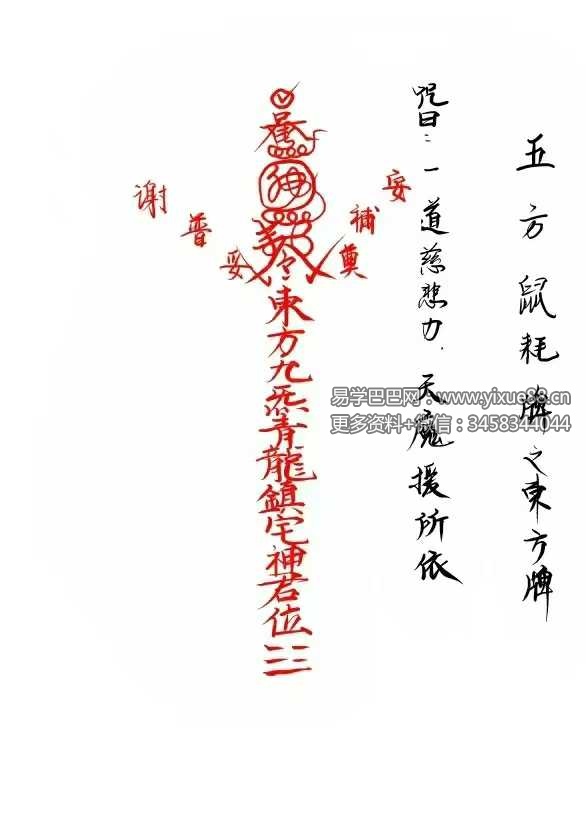 五方鼠耗牌之東方牌
咒曰：一道慈悲力．天魔援所依
安補奠
令東方九炁青龍鎮宅神君位
妥普谢
易学巴巴网：www.yixue88.cn
更多资料+微信：3458344044